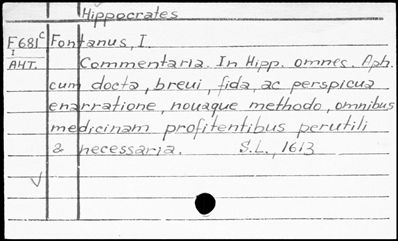 Hippocrates
F681c Fontanus, I.
I
AHT. Commentaria. In Hipp. omnes. Aph.
cum docta, breui, fida, ac perspicua
enarratione, nouaque methodo, omnibus
medicinam profitentibus perutili
& necessaria. S.L., 1613
✓